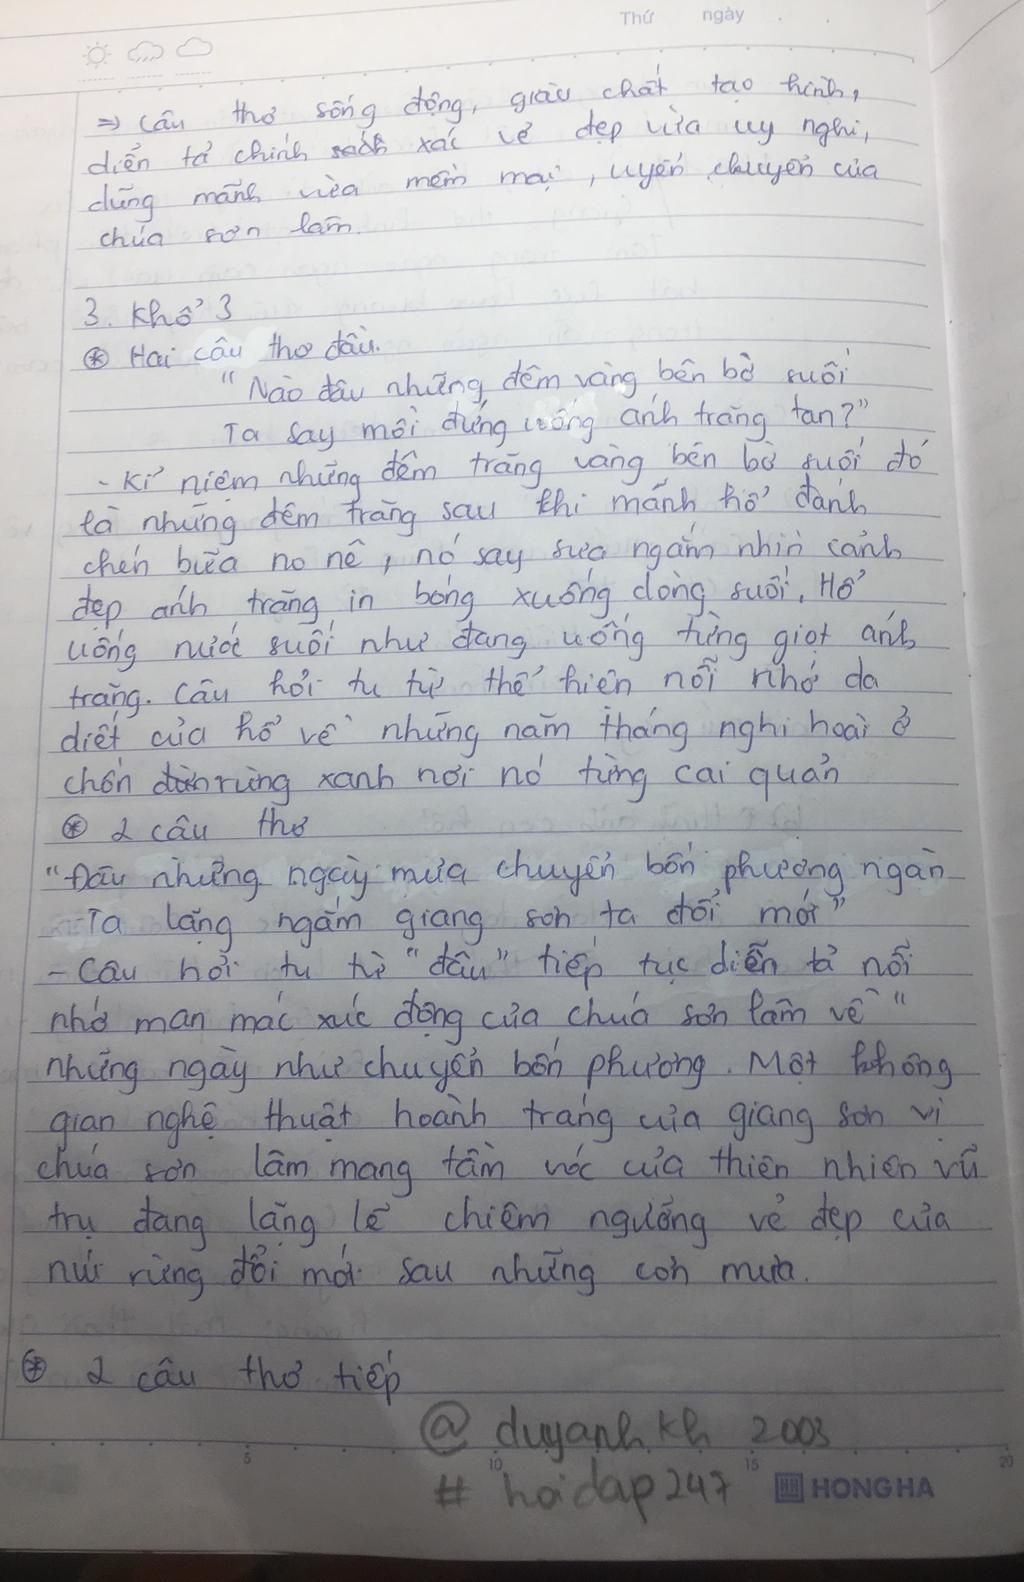 Thứ ngày . .
⇒ câu thơ sống động, giàu chất tạo hình,
diễn tả chính xác vẻ đẹp vừa uy nghi,
dũng mãnh vừa mềm mại, uyển chuyển của
chúa sơn lâm.
3. Khổ 3
⊛ Hai câu thơ đầu.
"Nào đâu những đêm vàng bên bờ suối
Ta say mồi đứng uống ánh trăng tan?"
- Kỉ niệm những đêm trăng vàng bên bờ suối đó
là những đêm trăng sau khi mãnh hổ đánh
chén bữa no nê, nó say sưa ngắm nhìn cảnh
đẹp ánh trăng in bóng xuống dòng suối. Hổ
uống nước suối như đang uống từng giọt ánh
trăng. Câu hỏi tu từ thể hiện nỗi nhớ da
diết của hổ về những năm tháng nghi hoài ở
chốn rừng xanh nơi nó từng cai quản
⊛ 2 câu thơ
"Đâu những ngày mưa chuyển bốn phương ngàn
Ta lặng ngắm giang sơn ta đổi mới"
- Câu hỏi tu từ "đâu" tiếp tục diễn tả nỗi
nhớ man mác xúc động của chúa sơn lâm về "
những ngày như chuyển bốn phương. Một không
gian nghệ thuật hoành tráng của giang sơn vị
chúa sơn lâm mang tầm vóc của thiên nhiên vũ
trụ đang lặng lẽ chiêm ngưỡng vẻ đẹp của
núi rừng đổi mới sau những cơn mưa.
⊛ 2 câu thơ tiếp
@ duyanh kh 2003
5 10 15 20
# hoidap247 HH HONG HA